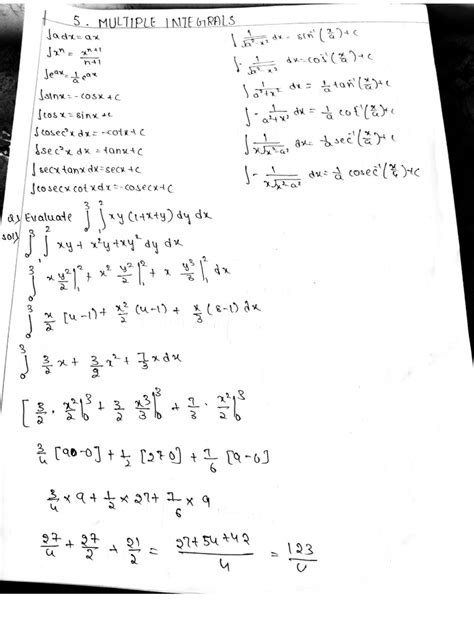 5. MULTIPLE INTEGRALS
∫a dx = ax
∫xⁿ = xⁿ⁺¹/n+1
∫eᵃˣ = 1/a eᵃˣ
∫sinx = -cosx + c
∫cosx = sinx + c
∫cosec²x dx = -cotx + c
∫sec²x dx = tanx + c
∫secx tanx dx = secx + c
∫cosecx cotx dx = -cosecx + c
∫ 1/√a²-x² dx = sin⁻¹(x/a) + c
∫ - 1/√a²-x² dx = cos⁻¹(x/a) + c
∫ 1/a²+x² dx = 1/a tan⁻¹(x/a) + c
∫ - 1/a²+x² dx = 1/a cot⁻¹(x/a) + c
∫ 1/x√x²-a² dx = 1/a sec⁻¹(x/a) + c
∫ - 1/x√x²-a² dx = 1/a cosec⁻¹(x/a) + c
Q) Evaluate ∫₀³ ∫₁² xy(1+x+y) dy dx
sol) ∫₀³ ∫₁² xy + x²y + xy² dy dx
∫₀³ x y²/2 |₁² + x² y²/2 |₁² + x y³/3 |₁² dx
∫₀³ x/2 [4-1] + x²/2 (4-1) + x/3 (8-1) dx
∫₀³ 3/2 x + 3/2 x² + 7/3 x dx
[ 3/2 · x²/2 |₀³ + 3/2 x³/3 |₀³ + 7/3 · x²/2 |₀³
3/4 [9-0] + 1/2 [27-0] + 7/6 [9-0]
3/4 × 9 + 1/2 × 27 + 7/6 × 9
27/4 + 27/2 + 21/2 = 27+54+42/4 = 123/4